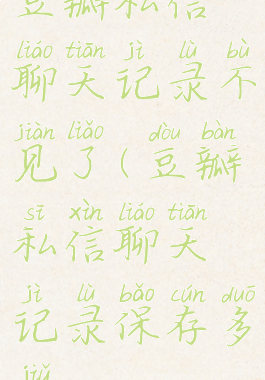 豆瓣私信
liáo tiān jì lù bù
聊天记录不
jiàn liǎo dòu bàn
见了(豆瓣
sī xìn liáo tiān
私信聊天
jì lù bǎo cún duō
记录保存多
jiǔ